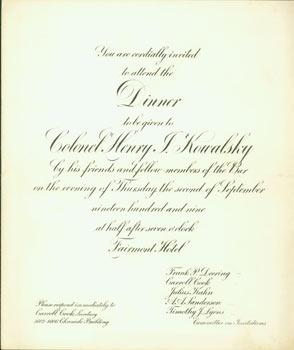 You are cordially invited
to attend the
Dinner
to be given to
Colonel Henry I. Kowalsky
by his friends and fellow members of the Bar
on the evening of Thursday the second of September
nineteen hundred and nine
at half after seven o'clock
Fairmont Hotel
Frank P. Deering
Carroll Cook
Julius Kahn
A. A. Sanderson
Timothy J. Lyons
Committee on Invitations
Please respond immediately to
Carroll Cook, Secretary
Building